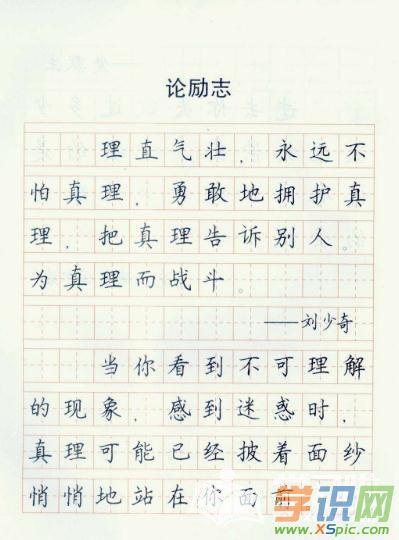 论励志
理直气壮，永远不
怕真理，勇敢地拥护真
理，把真理告诉别人。
为真理而战斗。
——刘少奇
当你看到不可理解
的现象，感到迷惑时，
真理可能已经披着面纱
悄悄地站在你面前
学识网
www.XSpic.com